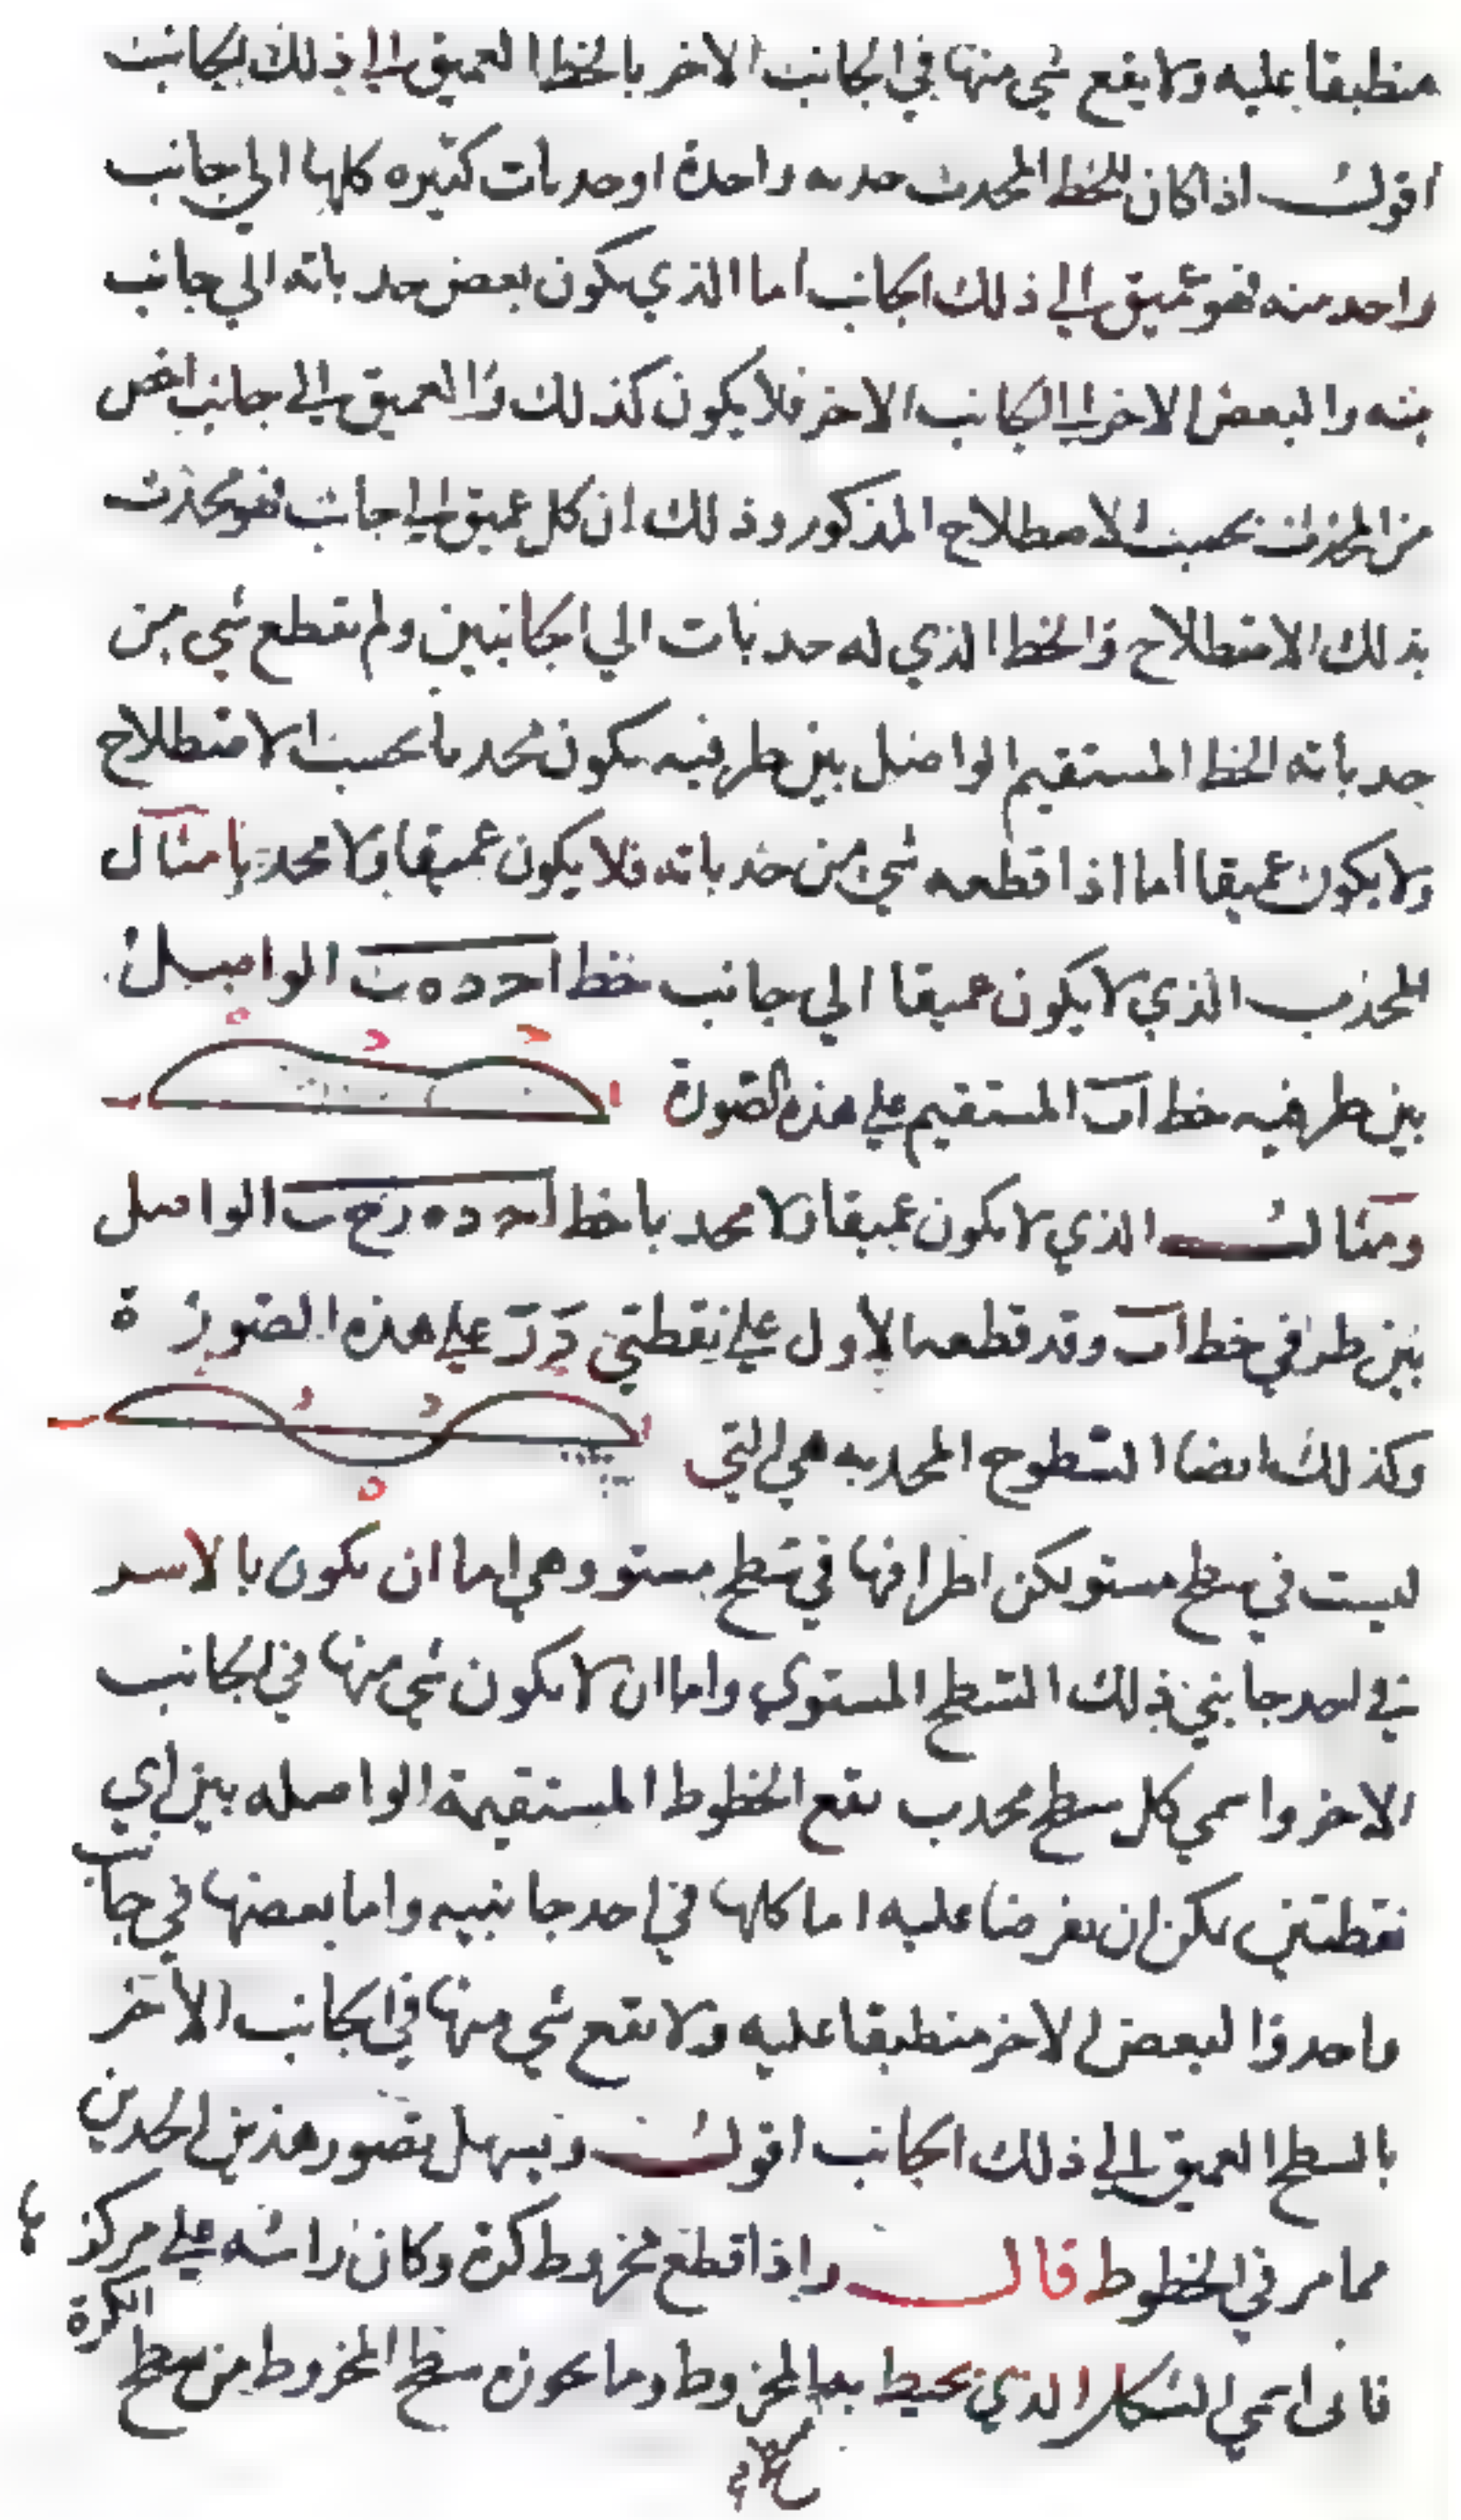 منطبقا عليه ولا يقع شي منها في الجانب الاخر بالخط العميق الي ذلك الجانب
اقول اذا كان للخط المحدب حدبه واحدة او حدبات كثيره كلها الي جانب
واحد منه فهو عميق الي ذلك الجانب اما الذي يكون بعض حدباته الي جانب
منه والبعض الاخر الي الجانب الاخر فلا يكون كذلك والعميق الي جانب اخص
من المحدب بحسب الاصطلاح المذكور وذلك ان كل عميق الي جانب فهو محدب
بذلك الاصطلاح والخط الذي له حدبات الي الجانبين ولم يقطع شي من
حدباته الخط المستقيم الواصل بين طرفيه يكون محدبا بحسب الاصطلاح
ولا يكون عميقا اما اذا قطعه شي من حدباته فلا يكون عميقا ولا محدبا مثال
المحدب الذي لا يكون عميقا الي جانب خط احده ب الواصل
بين طرفيه خط اب المستقيم علي هذه الصورة
ا ح د ه ب
ومثال الذي لا يكون عميقا ولا محدبا خط احده رح ب الواصل
بين طرفي خط اب وقد قطعه الاول علي نقطتي د ر علي هذه الصورة
وكذلك ايضا السطوح المحدبه هي التي
ليست في سطح مستو لكن اطرافها في سطح مستو وهي اما ان يكون بالاسر
في احد جانبي ذلك السطح المستوي واما ان لا يكون شي منها في الجانب
الاخر واسمي كل سطح محدب يقع الخطوط المستقيمة الواصله بين اي
نقطتين يمكن ان يفرضا عليه اما كلها في احد جانبيه واما بعضها في جانب
واحد والبعض الاخر منطبقا عليه ولا يقع شي منها في الجانب الاخر
بالسطح العميق الي ذلك الجانب اقول ويسهل تصور هذين الحدين
مما مر في الخطوط قال واذا قطع مخروط كرة وكان راسه علي مركزها
فاني اسمي الشكل الذي يحيط به المخروط وما يحوزه سطح المخروط من سطح الكرة